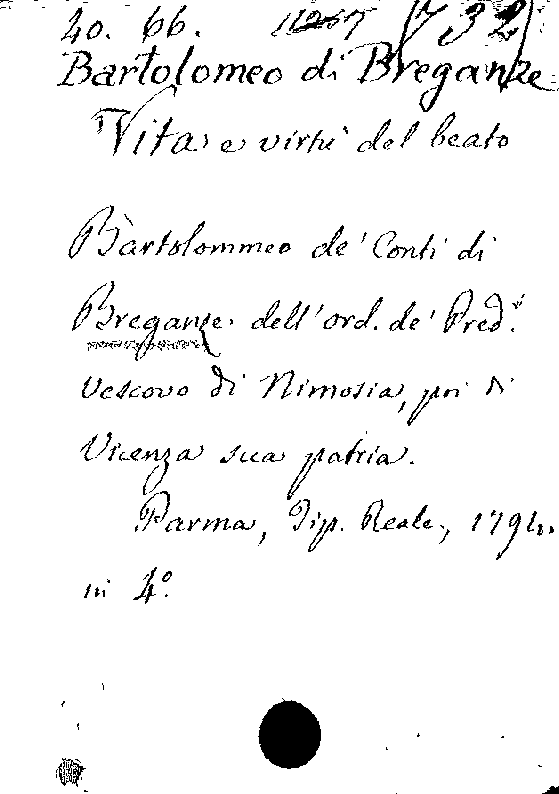 40. 66. (732)
Bartolomeo di Breganze
Vita e virtù del beato
Bartolommeo de' Conti di
Breganze dell'ord. de' Pred.i
Vescovo di Nimosia, poi di
Vicenza sua patria.
Parma, Tip. Reale, 1794.
in 4°.